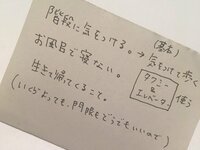 階段に気をつける。→ (基本) 気をつけて歩く
お風呂で寝ない。
タクシー & エレベータ 使う
生きて帰ってくること。
(いくらよっても、門限もどうでもいいので)